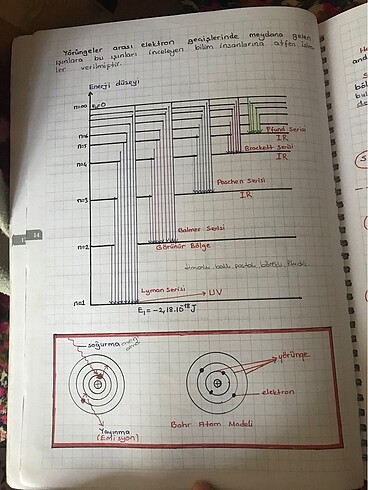 Yörüngeler arası elektron geçişlerinde meydana gelen
ışınlara bu ışınları inceleyen bilim insanlarına atfen isim
ler verilmiştir.
Enerji düzeyi
n=∞ E=0
n=6 Pfund Serisi
IR
n=5 Brackett Serisi
n=4 IR
Paschen Serisi
n=3 IR
Balmer Serisi
n=2 Görünür Bölge
Lyman Serisi UV
n=1
E₁ = -2,18.10⁻¹⁸ J
soğurma
yörünge
elektron
Yayınma
(Emisyon)
Bohr Atom Modeli
14